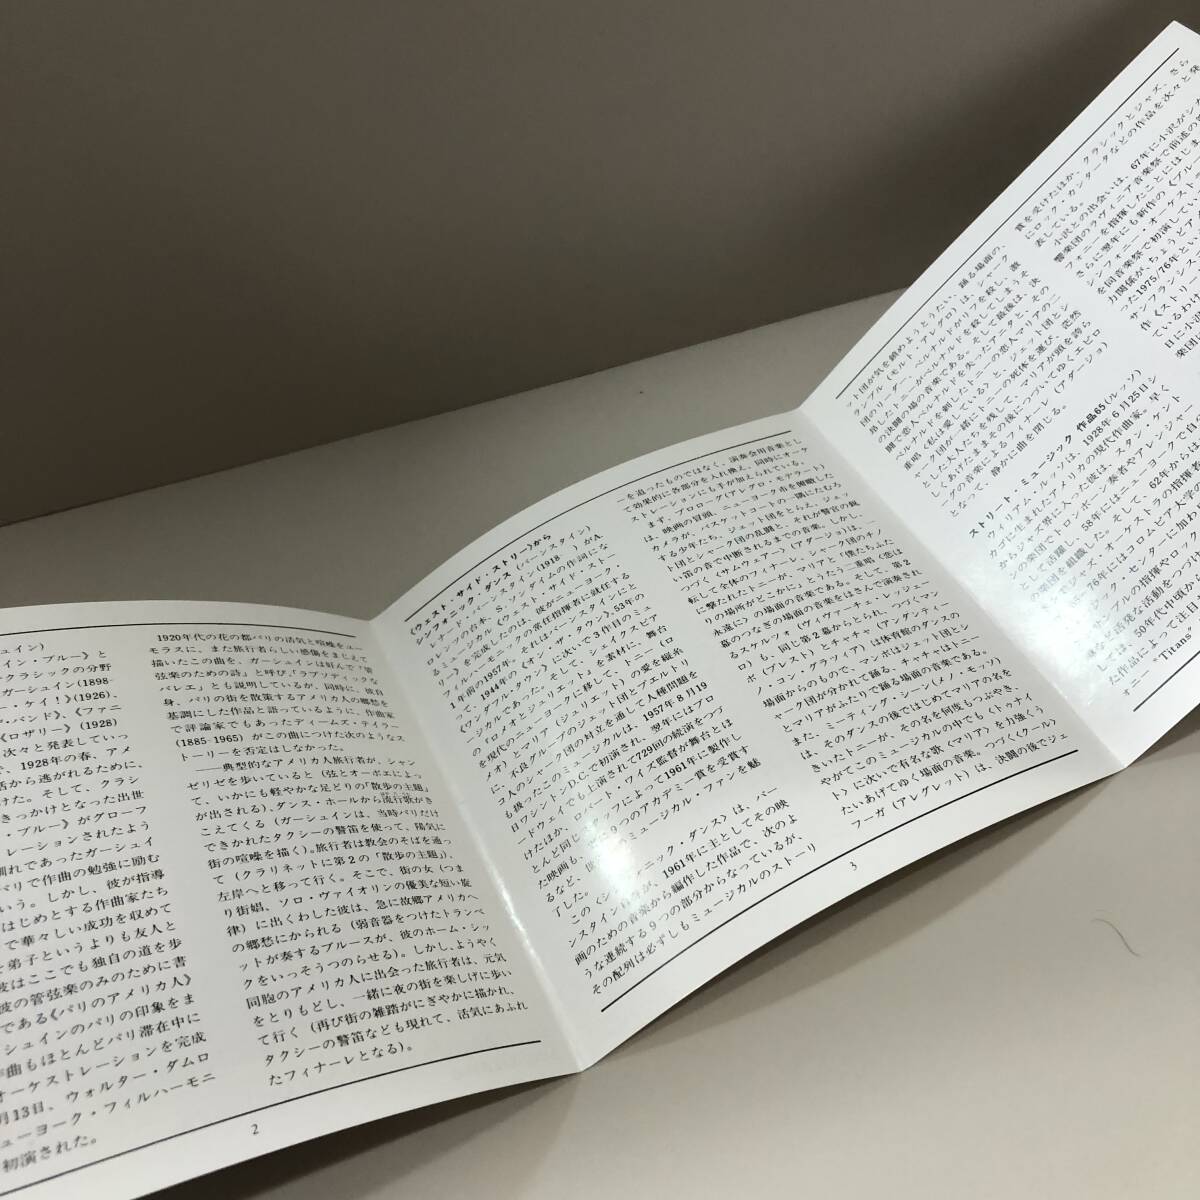 シュイン)
イン・ブルー》と
クラシックの分野
ガーシュイン(1898-
ー・ケイ!》(1926)、
・バンド》、《ファニ
《ロザリー》(1928)
次々と発表していっ
、1928年の春、アメ
活から逃がれるために、
けた。そして、クラシ
きっかけとなった出世
・ブルー》がグローフ
レーションされたよう
れであったガーシュイ
パリで作曲の勉強に励む
いう。しかし、彼が指導
はじめとする作曲家たち
で華々しい成功を収めて
を弟子というよりも友人と
彼はここでも独自の道を歩
彼の管弦楽のみのために書
である《パリのアメリカ人》
シュインのパリの印象をま
作曲もほとんどパリ滞在中に
オーケストレーションを完成
月13日、ウォルター・ダムロ
ューヨーク・フィルハーモニ
初演された。
1920年代の花の都パリの活気と喧噪をユー
モラスに、また旅行者らしい感傷をまじえて
描いたこの曲を、ガーシュインは好んで「管
弦楽のための詩」と呼び、「ラプソディックな
バレエ」とも説明しているが、同時に、彼自
身、パリの街を散策するアメリカ人の郷愁を
基調にした作品と語っているように、作曲家
で評論家でもあったディームズ・テイラー
(1885-1965)がこの曲につけた次のようなス
トーリーを否定はしなかった。
――典型的なアメリカ人旅行者が、シャン
ゼリゼを歩いていると(弦とオーボエによっ
て、いかにも軽やかな足どりの「散歩の主題」
が出される)、ダンス・ホールから流行歌がき
こえてくる(ガーシュインは、当時パリだけ
できかれたタクシーの警笛を使って、陽気に
街の喧噪を描く)。旅行者は教会のそばを通っ
て(クラリネットに第2の「散歩の主題」)、
左岸へと移って行く。そこで、街の女(つま
り街娼、ソロ・ヴァイオリンの優美な短い旋
律)に出くわした彼は、急に故郷アメリカへ
の郷愁にかられる(弱音器をつけたトランペ
ットが奏するブルースが、彼のホーム・シッ
クをいっそうつのらせる)。しかし、ようやく
同胞のアメリカ人に出会った旅行者は、元気
をとりもどし、一緒に夜の街を楽しげに歩い
て行く(再び街の雑踏がにぎやかに描かれ、
タクシーの警笛なども現れて、活気にあふれ
たフィナーレとなる)。
2
《ウェスト・サイド・ストリー》から
シンフォニック・ダンス(バーンスタイン)
レナード・バーンスタイン(1918- )がA.
ロレンツの台本、S.ソンダイムの作詞にな
るミュージカル《ウェスト・サイド・スト
リー》を完成したのは、彼がニューヨーク・
フィルハーモニックの常任指揮者に就任する
1年前の1957年。それはバーンスタインにと
って、1944年の《オン・ザ・タウン》、53年の
《ワンダフル・タウン》に次いで3作目のミュ
ージカルであった。そして、シェイクスピア
の《ロメオとジュリエット》を素材に、舞台
を現代のニューヨークに移して、トニー(ロ
メオ)とマリア(ジュリエット)の愛を縦糸
に、不良グループのジェット団とプエルトリ
コ人のシャーク団の対立を通して人種問題を
も扱ったこのミュージカルは、1957年8月19
日ワシントンD.C.で初演され、翌年にはブロ
ードウェイでも上演されて729回の続演をつづ
けたほか、ロバート・ワイズ監督が舞台とほ
とんど同じスタッフによって1961年に製作し
た映画も、9つのアカデミー賞を受賞す
るなど、ミュージカル・ファンを魅
了した。
この《シンフォニック・ダンス》は、バー
ンスタイン自身が、1961年に主としてその映
画のための音楽から編作した作品で、次のよ
うな連続する9つの部分からなっているが、
その配列は必ずしもミュージカルのストーリ
ーを追ったものではなく、演奏会用音楽とし
て効果的に各部分を入れ換え、同時にオーケ
ストレーションにも手が加えられている。
まず、プロローグ(アレグロ・モデラート)
は、映画の冒頭、ニューヨーク市を俯瞰した
カメラが、バスケットコートの一隅にたむろ
する少年たち、ジェット団をとらえ、ジェッ
ト団とシャーク団の乱闘と、それが警官の鋭
い笛の音で中断されるまでの音楽。しかし、
つづく〈サムウェアー〉(アダージョ)は、一
転して全体のフィナーレ、シャーク団のチノ
に撃たれたトニーが、マリアと「僕たちふた
りの場所がどこかに」とうたう二重唱〈恋は
永遠に〉の場面の音楽である。そして、第2
幕のつなぎの場面の音楽をはさんで演奏され
るスケルツォ(ヴィヴァーチェ・レッジェー
ロ)も、同じ第2幕からとられ、つづくマン
ボ(プレスト)とチャチャ(アンダンティー
ノ・コン・グラツィア)は体育館のダンスの
場面からのもので、マンボはジェット団とシ
ャーク団が分かれて踊る、チャチャはトニー
とマリアがふたりで踊る場面の音楽である。
また、ミーティング・シーン(メノ・モッソ)
は、そのダンスの後ではじめてマリアの名を
きいたトニーが、その名を何度もつぶやき、
やがてこのミュージカルの中でも〈トゥナイ
ト〉に次いで有名な歌〈マリア〉を力強くう
たいあげてゆく場面の音楽。つづく〈クール〉、
フーガ(アレグレット)は、決闘の後でジェ
3
ット団が気を鎮めようとうたい、踊る場面の、
ランブル(モルト・アレグロ)は、シャーク
団のリーダー、ベルナルドがリフを殺し、激
昂したトニーがベルナルドを殺してしまうそ
の決闘の場の音楽である。そして最後は、決
闘で恋人ベルナルドを失ったアニタと、その
ベルナルドを刺したトニーの恋人マリアの二
重唱〈私は愛している〉と、ジェット団とシ
ャーク団が一緒にトニーの死体を運び、茫然
とした大人たちを残して、マリアが頭を誇ら
しくあげたままその後につづいてゆくエピロ
ーグの音楽によるフィナーレ(アダージョ)
となって、静かに曲を閉じる。
ストリート・ミュージック 作品65(ルッソ)
ウィリアム・ルッソは、1928年6月25日シ
カゴに生まれたアメリカの現代作曲家。早く
からジャズ界に入った彼は、スタン・ケント
ンの楽団でトロンボーン奏者やアレンジャー
として活躍し、58年にはニューヨークで自ら
の楽団を組織した。
62年からは
ジャズ・オーケストラの指揮者
76年にはコロムビア大学の
ック・センターに加
サンブルの指揮やロック
ど多発な活動をつづ
しては、50年代中頃か
作品によって注目
ォニー “Titans”
賞を受けたほか、クラシックとジャズ、さら
にロック・カンタータなどの作品を次々と発
表している。
小沢との出会いは、67年に小沢がシカ
響楽団のラヴィニア音楽祭で前述の
フォニーを指揮したことにはじま
さらに翌年にも新作の《ブルー
シンフォニー・オーケスト
を同音楽祭で初演してい
力関係が、ちょうどア
った1975/76年とい
サンフランシス
作《ストリー
ているわけ
日に小沢
楽団に